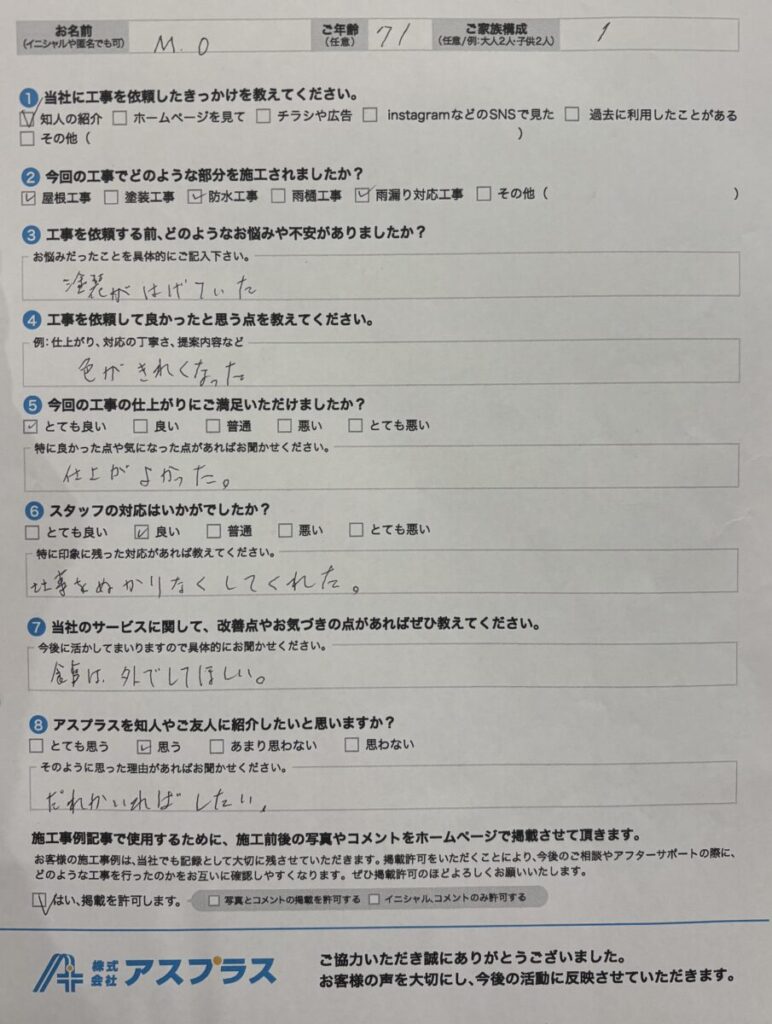 お名前
(イニシャルや匿名でも可)
M.O
ご年齢
(任意)
71
ご家族構成
(任意/例:大人2人・子供2人)
1
1 当社に工事を依頼したきっかけを教えてください。
☑ 知人の紹介 □ ホームページを見て □ チラシや広告 □ instagramなどのSNSで見た □ 過去に利用したことがある
□ その他 ( )
2 今回の工事でどのような部分を施工されましたか?
☑ 屋根工事 □ 塗装工事 ☑ 防水工事 □ 雨樋工事 ☑ 雨漏り対応工事 □ その他 ( )
3 工事を依頼する前、どのようなお悩みや不安がありましたか?
お悩みだったことを具体的にご記入下さい。
塗装がはげていた
4 工事を依頼して良かったと思う点を教えてください。
例:仕上がり、対応の丁寧さ、提案内容など
色がきれくなった。
5 今回の工事の仕上がりにご満足いただけましたか?
☑ とても良い □ 良い □ 普通 □ 悪い □ とても悪い
特に良かった点や気になった点があればお聞かせください。
仕上がよかった。
6 スタッフの対応はいかがでしたか?
□ とても良い ☑ 良い □ 普通 □ 悪い □ とても悪い
特に印象に残った対応があれば教えてください。
仕事をぬかりなくしてくれた。
7 当社のサービスに関して、改善点やお気づきの点があればぜひ教えてください。
今後に活かしてまいりますので具体的にお聞かせください。
食事は、外でしてほしい。
8 アスプラスを知人やご友人に紹介したいと思いますか?
□ とても思う ☑ 思う □ あまり思わない □ 思わない
そのように思った理由があればお聞かせください。
だれかいればしたい。
施工事例記事で使用するために、施工前後の写真やコメントをホームページで掲載させて頂きます。
お客様の施工事例は、当社でも記録として大切に残させていただきます。掲載許可をいただくことにより、今後のご相談やアフターサポートの際に、
どのような工事を行ったのかをお互いに確認しやすくなります。ぜひ掲載許可のほどよろしくお願いいたします。
☑ はい、掲載を許可します。 □ 写真とコメントの掲載を許可する □ イニシャル、コメントのみ許可する
株式会社 アスプラス
ご協力いただき誠にありがとうございました。
お客様の声を大切にし、今後の活動に反映させていただきます。